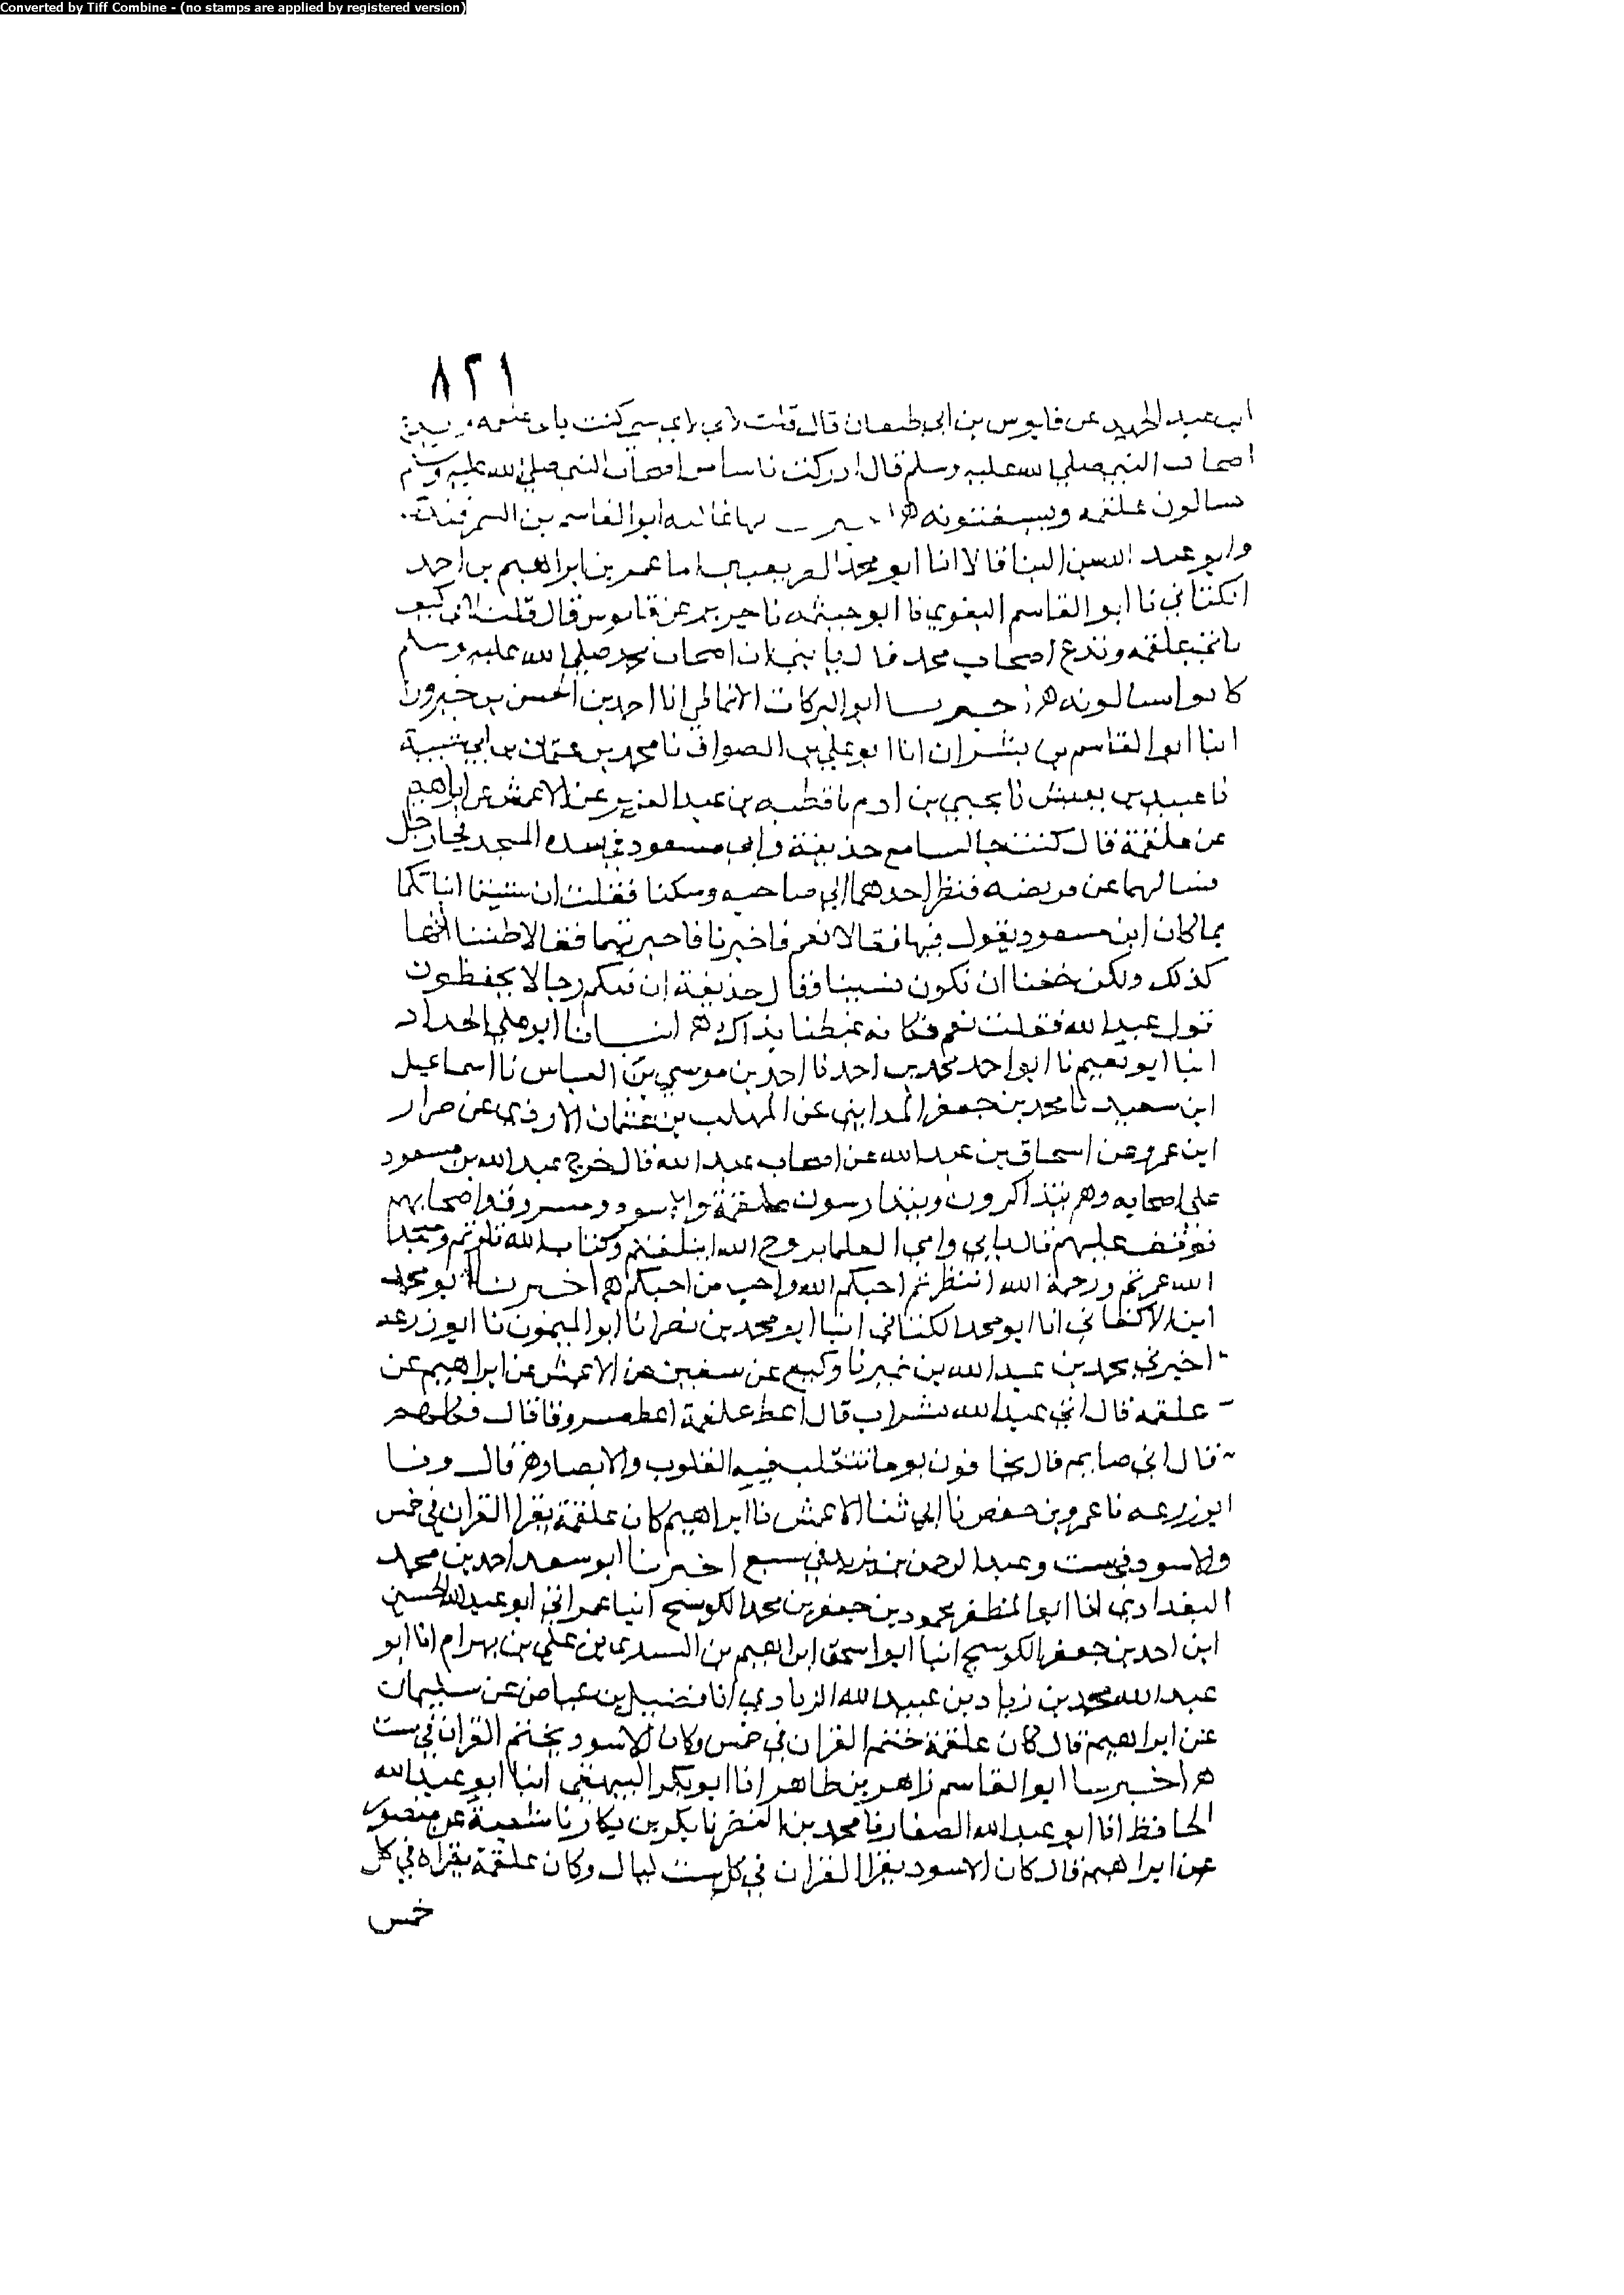 Converted by Tiff Combine - (no stamps are applied by registered version)
٨٢١
ابن عبد الحميد عن قابوس بن ابي ظبيان قال قلت لابي لاي شي كنت تاتي علقمة وتدع
اصحاب النبي صلى الله عليه وسلم قال ادركت ناسا من اصحاب النبي صلى الله عليه وسلم
يسالون علقمة ويستفتونه ه ابو القاسم بن السمرقندي
وابو عبد الله بن البنا قالا انا ابو محمد الصريفيني انا عمر بن ابراهيم بن احمد
الكتاني نا ابو القاسم البغوي نا ابو خيثمة نا جرير عن قابوس قال قلت لابي كيف
تاتي علقمة وتدع اصحاب محمد قال يا بني ان اصحاب محمد صلى الله عليه وسلم
كانوا يسالونه ه اخبرنا ابو البركات الانماطي انا احمد بن الحسن بن خيرون
انبا ابو القاسم بن بشران انا ابو علي بن الصواف نا محمد بن عثمان بن ابي شيبة
نا عبيد بن يعيش نا يحيى بن ادم نا قطبه بن عبد العزيز عن الاعمش عن ابراهيم
عن علقمة قال كنت جالسا مع حذيفة وابي مسعود في هذه المسجد فجا رجل
فسالهما عن فريضه فنظر احدهما الى صاحبه وسكتا فقلت ان شيتما انباتكما
بما كان ابن مسعود يقول فيها فقالا نعم فاخبرنا فاخبرتهما فقالا ظننا انها
كذلك ولكن خفنا ان نكون نسينا فقال حذيفة ان فيكم رجالا يحفظون
قول عبد الله فقلت نعم فكانه غبطنا بذاك ه انبانا ابو علي الحداد
انبا ابو نعيم نا ابو احمد محمد بن احمد نا احمد بن موسى بن العباس نا اسماعيل
ابن سعيد نا محمد بن جعفر المدايني عن المهلب بن عثمان الازدي عن ضرار
ابن عمرو عن اسحاق بن عبد الله عن اصحاب عبد الله قال خرج عبد الله بن مسعود
على اصحابه وهم يتذاكرون ويتدارسون علقمة والاسود ومسروق واصحابهم
فوقف عليهم قال بابي وامي العلما بروح الله ايتلفتم وكتاب الله تلوتم ومسجد
الله عمرتم ورحمة الله انتظرتم احبكم الله واحب من احبكم ه اخبرنا ابو محمد
ابن الاكفاني انا ابو محمد الكتاني انبا ابو محمد بن نصر انا ابو الميمون نا ابو زرعه
اخبرني محمد بن عبد الله بن نمير نا وكيع عن سفين عن الاعمش عن ابراهيم عن
علقمة قال اتي عبد الله بشراب قال اعط علقمة اعط مسروقا قال فكلهم
قال اني صايم قال يخافون يوما تتقلب فيه القلوب والابصار ه قال ونا
ابو زرعه نا عمر بن حفص نا ابي ثنا الاعمش نا ابراهيم كان علقمة يقرا القران في خمس
والاسود في ست وعبد الرحمن بن يزيد في سبع اخبرنا ابو سعد احمد بن محمد
البغدادي انا ابو المظفر محمود بن جعفر بن محمد الكوسج انبا عم ابي ابو عبد الله الحسين
ابن احمد بن جعفر الكوسج انبا ابو اسحق ابراهيم بن السندي بن علي بن بهرام انا ابو
عبد الله محمد بن زياد بن عبيد الله الزيادي انا فضيل بن عياض عن سليمان
عن ابراهيم قال كان علقمة ختم القران في خمس وكان الاسود يختم القران في ست
ه اخبرنا ابو القاسم زاهر بن طاهر انا ابو بكر البيهقي انبا ابو عبد الله
الحافظ انا ابو عبد الله الصفار نا محمد بن النضر نا بكر بن بكار نا شعبة عن منصور
عن ابراهيم قال كان الاسود يقرا القران في كل ست ليال وكان علقمة يقراه في كل
خمس